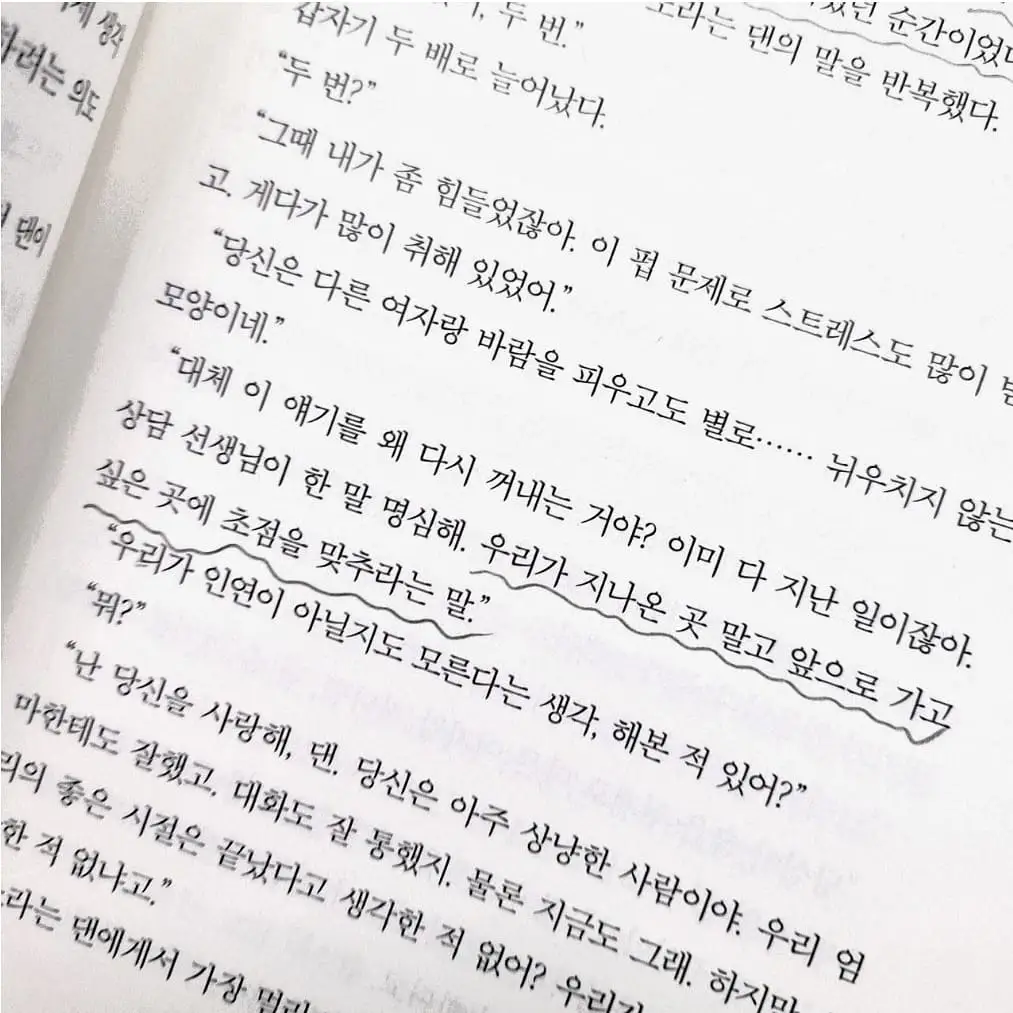 게 생각
하려는 의도
댄이
던 순간이었
노라는 댄의 말을 반복했다.
두 번.”
갑자기 두 배로 늘어났다.
“두 번?”
“그때 내가 좀 힘들었잖아. 이 펍 문제로 스트레스도 많이 받
고. 게다가 많이 취해 있었어.”
“당신은 다른 여자랑 바람을 피우고도 별로…… 뉘우치지 않는
모양이네.”
“대체 이 얘기를 왜 다시 꺼내는 거야? 이미 다 지난 일이잖아.
상담 선생님이 한 말 명심해. 우리가 지나온 곳 말고 앞으로 가고
싶은 곳에 초점을 맞추라는 말.”
“우리가 인연이 아닐지도 모른다는 생각, 해본 적 있어?”
“뭐?”
“난 당신을 사랑해, 댄. 당신은 아주 상냥한 사람이야. 우리 엄
마한테도 잘했고. 대화도 잘 통했지. 물론 지금도 그래. 하지만
리의 좋은 시절은 끝났다고 생각한 적 없어? 우리가
한 적 없냐고.”
노라는 댄에게서 가장 멀리